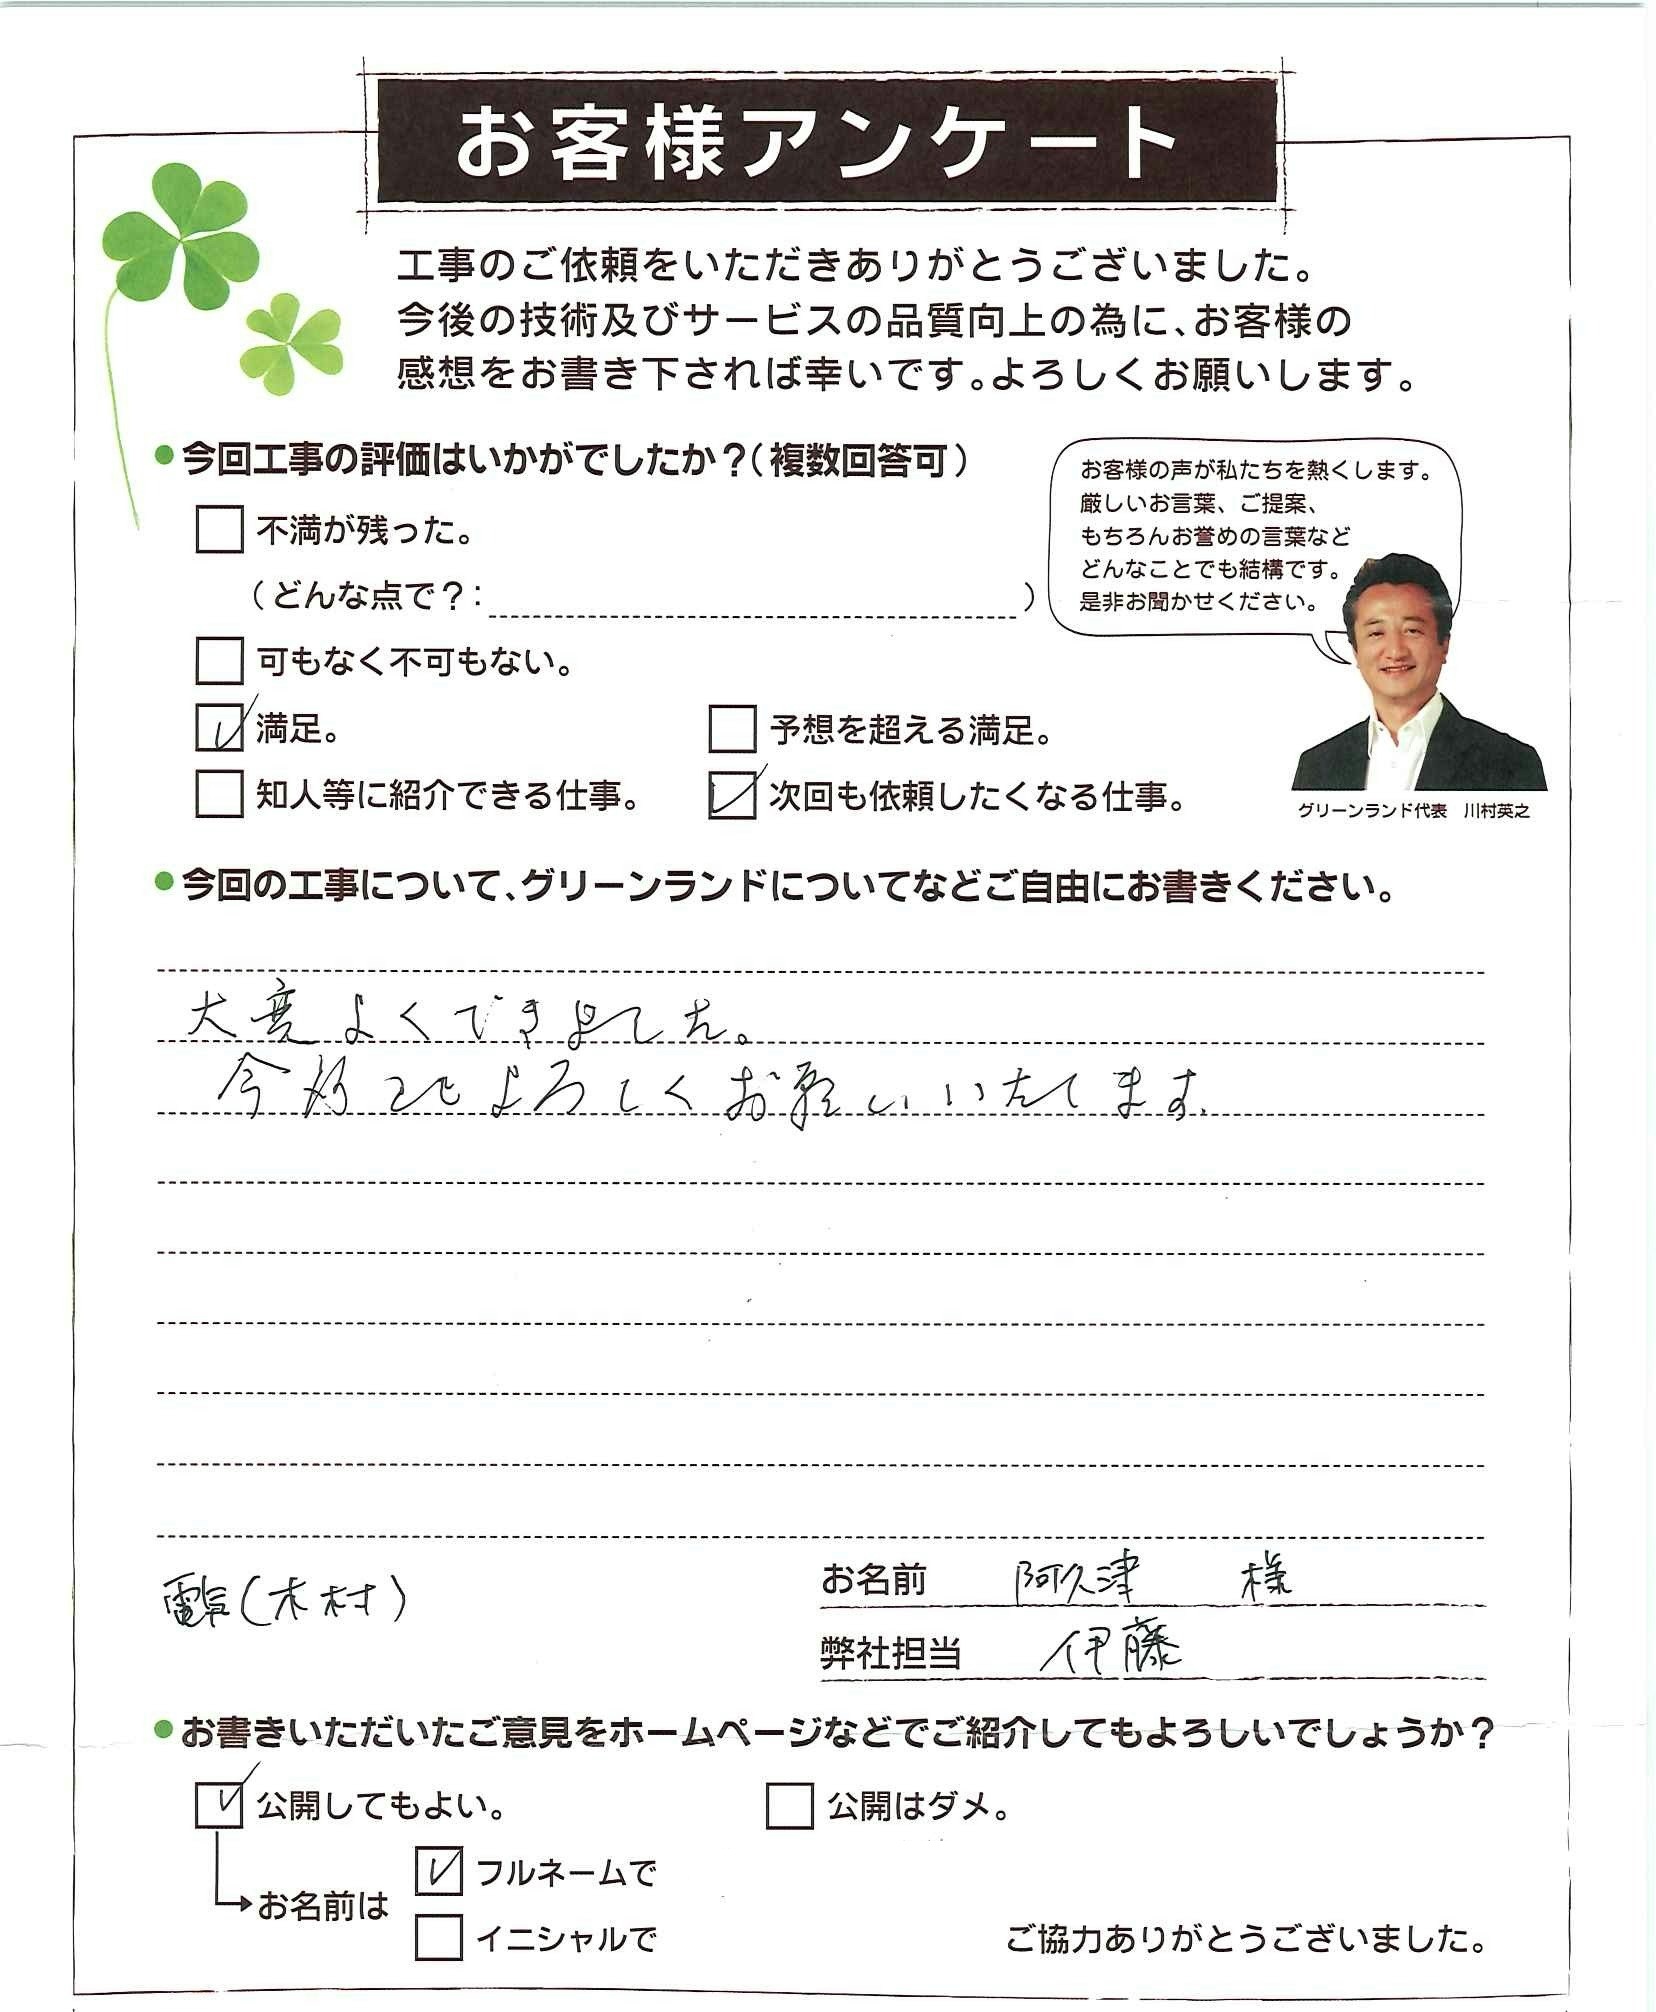 お客様アンケート
工事のご依頼をいただきありがとうございました。
今後の技術及びサービスの品質向上の為に、お客様の
感想をお書き下されば幸いです。よろしくお願いします。
●今回工事の評価はいかがでしたか？（複数回答可）
不満が残った。
（どんな点で？：　）
可もなく不可もない。
満足。
予想を超える満足。
知人等に紹介できる仕事。
次回も依頼したくなる仕事。
お客様の声が私たちを熱くします。
厳しいお言葉、ご提案、
もちろんお誉めの言葉など
どんなことでも結構です。
是非お聞かせください。
グリーンランド代表　川村英之
●今回の工事について、グリーンランドについてなどご自由にお書きください。
大変よくできました。
今后ともよろしくお願いいたします。
電気（木村）
お名前　阿久津　様
弊社担当　伊藤
●お書きいただいたご意見をホームページなどでご紹介してもよろしいでしょうか？
公開してもよい。
公開はダメ。
お名前は
フルネームで
イニシャルで
ご協力ありがとうございました。